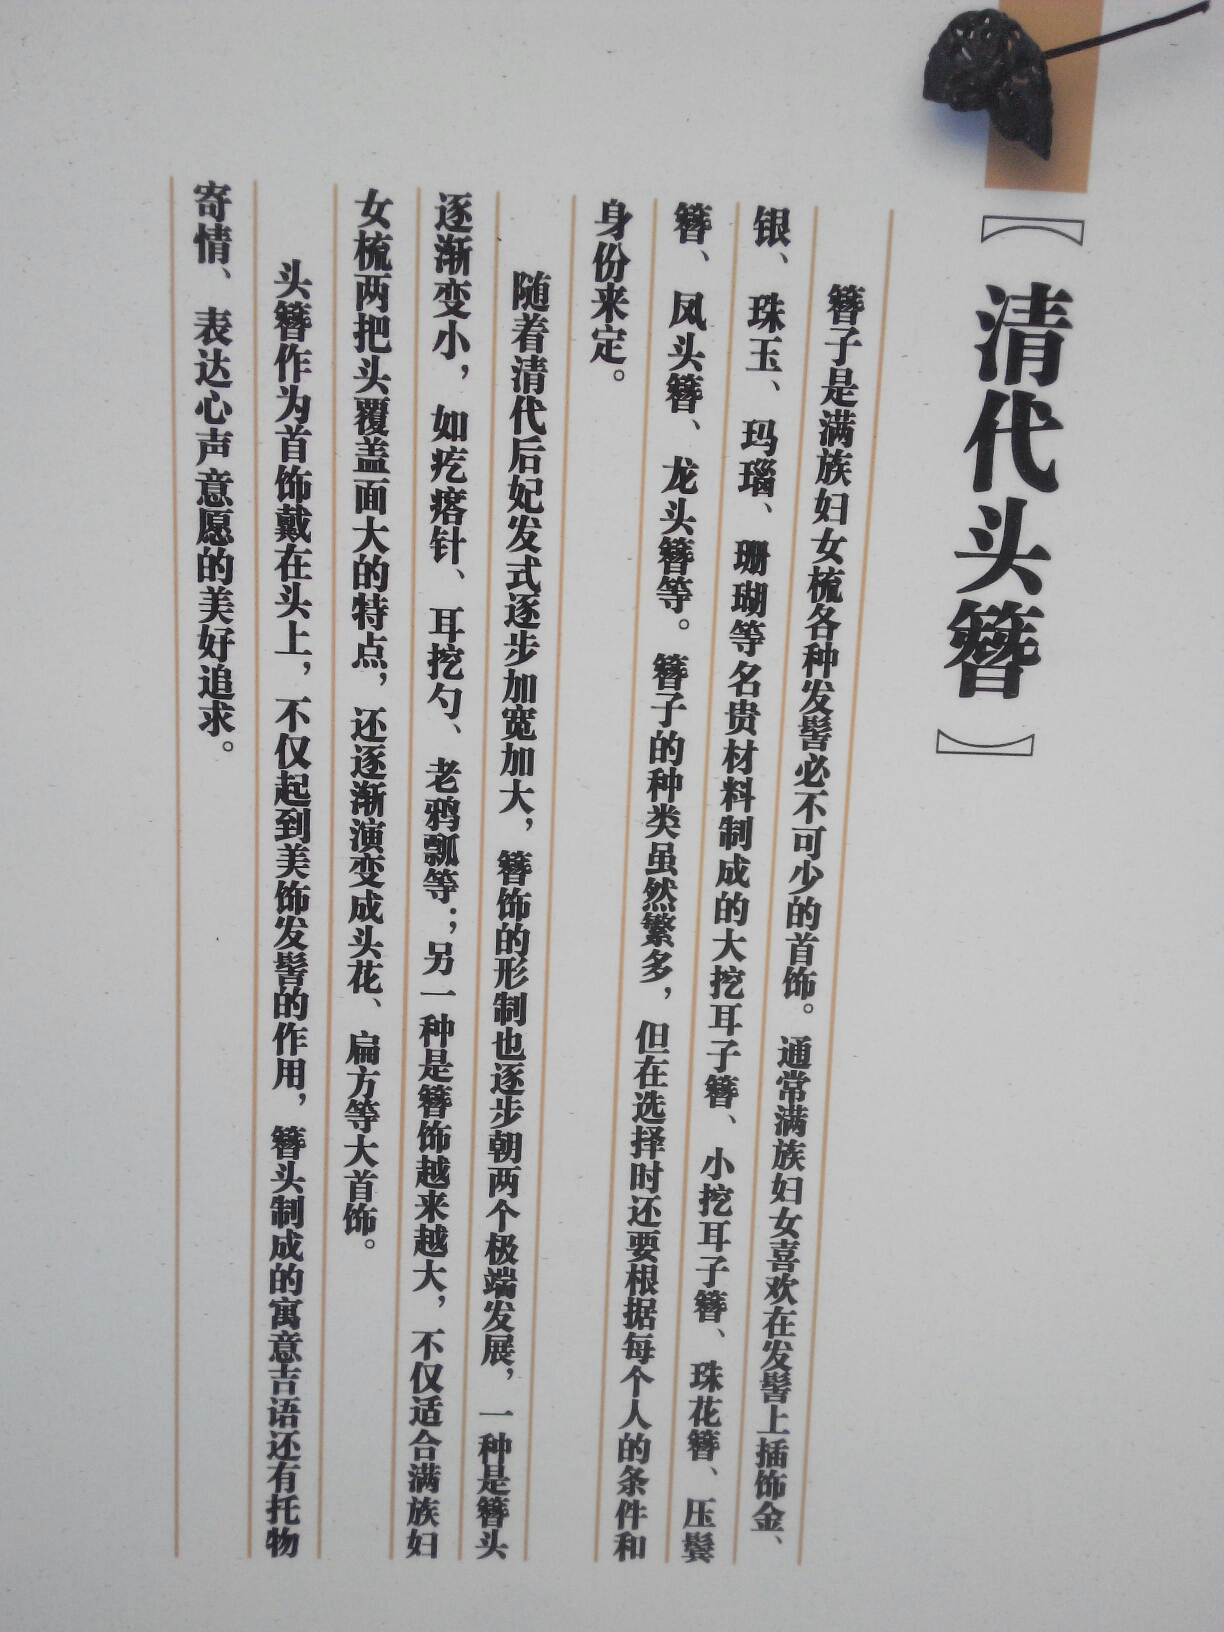 【清代头簪】
簪子是满族妇女梳各种发髻必不可少的首饰。通常满族妇女喜欢在发髻上插饰金、
银、珠玉、玛瑙、珊瑚等名贵材料制成的大挖耳子簪、小挖耳子簪、珠花簪、压鬓
簪、凤头簪、龙头簪等。簪子的种类虽然繁多，但在选择时还要根据每个人的条件和
身份来定。
随着清代后妃发式逐步加宽加大，簪饰的形制也逐步朝两个极端发展，一种是簪头
逐渐变小，如疙瘩针、耳挖勺、老鸦瓢等；另一种是簪饰越来越大，不仅适合满族妇
女梳两把头覆盖面大的特点，还逐渐演变成头花、扁方等大首饰。
头簪作为首饰戴在头上，不仅起到美饰发髻的作用，簪头制成的寓意吉语还有托物
寄情、表达心声意愿的美好追求。